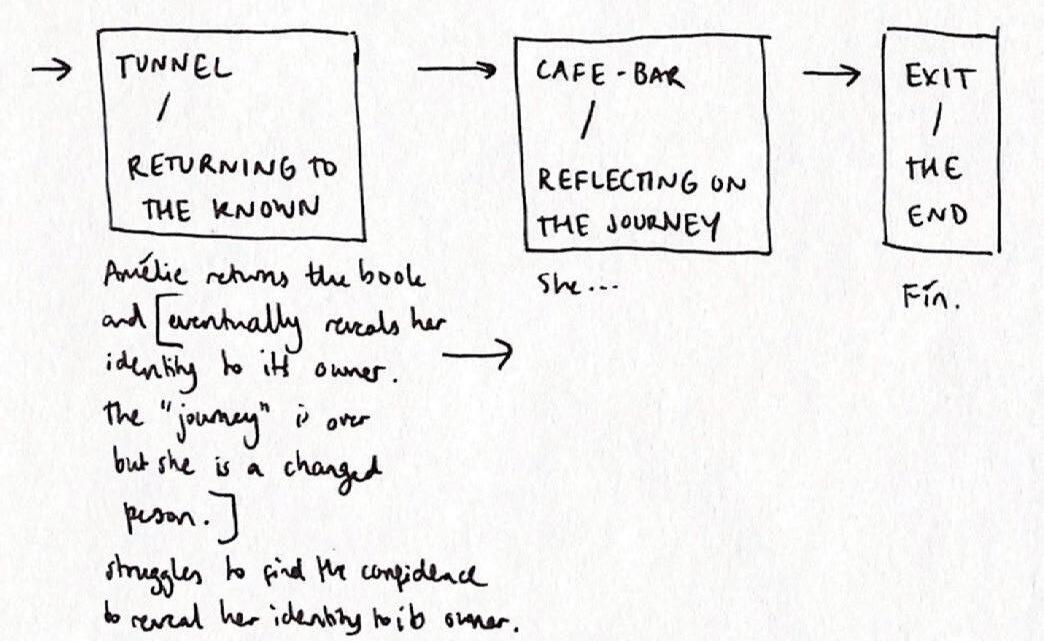 TUNNEL
/
RETURNING TO
THE KNOWN
Amélie returns the book
and [eventually reveals her
identity to its owner.
The "journey" is over
but she is a changed
person.]
struggles to find the confidence
to reveal her identity to its owner.
CAFE-BAR
/
REFLECTING ON
THE JOURNEY
She...
EXIT
/
THE
END
Fín.